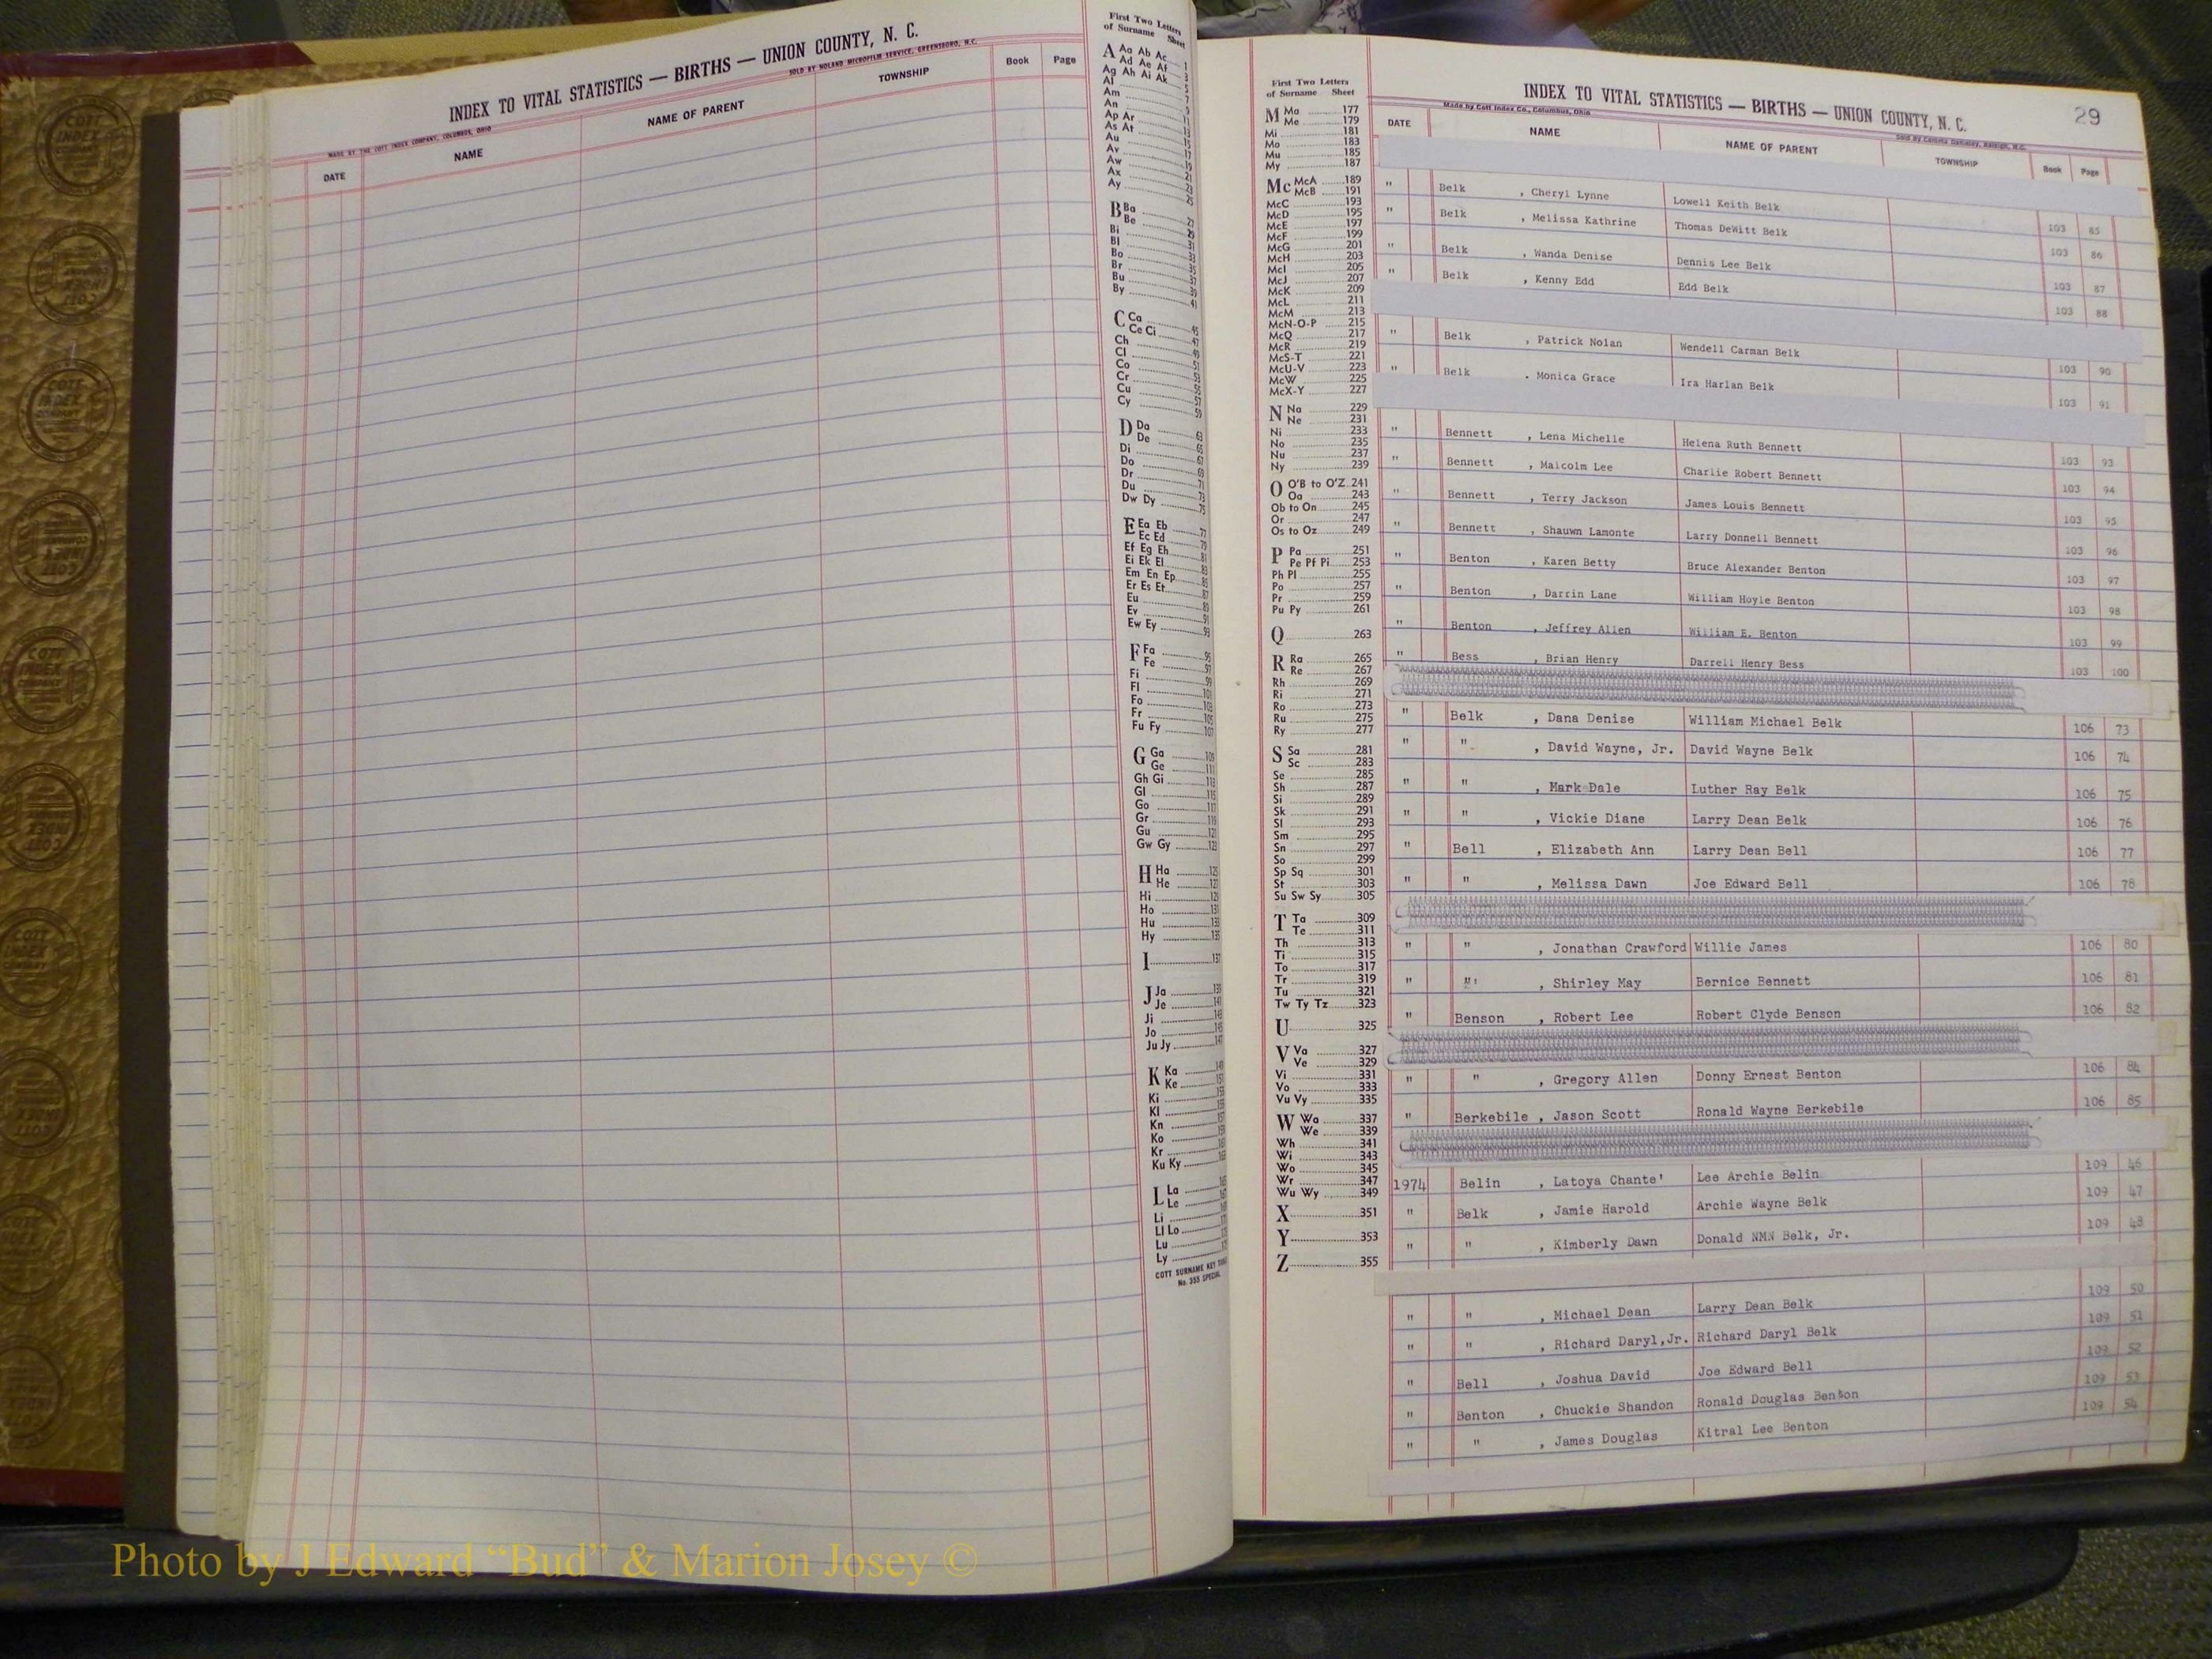 INDEX TO VITAL STATISTICS — BIRTHS — UNION COUNTY, N. C.
MADE BY THE COTT INDEX COMPANY, COLUMBUS, OHIO
SOLD BY NOLAND MICROFILM SERVICE, GREENSBORO, N.C.
DATE NAME NAME OF PARENT TOWNSHIP Book Page
First Two Letters
of Surname Sheet
A Aa Ab Ac 1
Ad Ae Af 3
Ag Ah Ai Ak 5
Al 7
Am 9
An 11
Ap Ar 13
As At 15
Au 17
Av 19
Aw 21
Ax 23
Ay 25
B Ba 27
Be 29
Bi 31
Bl 33
Bo 35
Br 37
Bu 39
By 41
C Ca 45
Ce Ci 47
Ch 49
Cl 51
Co 53
Cr 55
Cu 57
Cy 59
D Da 63
De 65
Di 67
Do 69
Dr 71
Du 73
Dw Dy 75
E Ea Eb 77
Ec Ed 79
Ef Eg Eh 81
Ei Ek El 83
Em En Ep 85
Er Es Et 87
Eu 89
Ev 91
Ew Ey 93
F Fa 95
Fe 97
Fi 99
Fl 101
Fo 103
Fr 105
Fu Fy 107
G Ga 109
Ge 111
Gh Gi 113
Gl 115
Go 117
Gr 119
Gu 121
Gw Gy 123
H Ha 125
He 127
Hi
Ho
Hu
Hy
I
J Ja
Je
Ji
Jo
Ju Jy
K Ka
Ke
Ki
Kl
Kn
Ko
Kr
Ku Ky
L La
Le
Li
Ll Lo
Lu
Ly
COTT SURNAME KEY
No. 355 SPECIAL
First Two Letters
of Surname Sheet
M Ma 177
Me 179
Mi 181
Mo 183
Mu 185
My 187
Mc McA 189
McB 191
McC 193
McD 195
McE 197
McF 199
McG 201
McH 203
McI 205
McJ 207
McK 209
McL 211
McM 213
McN-O-P 215
McQ 217
McR 219
McS-T 221
McU-V 223
McW 225
McX-Y 227
N Na 229
Ne 231
Ni 233
No 235
Nu 237
Ny 239
O O'B to O'Z 241
Oa 243
Ob to On 245
Or 247
Os to Oz 249
P Pa 251
Pe Pf Pi 253
Ph Pl 255
Po 257
Pr 259
Pu Py 261
Q 263
R Ra 265
Re 267
Rh 269
Ri 271
Ro 273
Ru 275
Ry 277
S Sa 281
Sc 283
Se 285
Sh 287
Si 289
Sk 291
Sl 293
Sm 295
Sn 297
So 299
Sp Sq 301
St 303
Su Sw Sy 305
T Ta 309
Te 311
Th 313
Ti 315
To 317
Tr 319
Tu 321
Tw Ty Tz 323
U 325
V Va 327
Ve 329
Vi 331
Vo 333
Vu Vy 335
W Wa 337
We 339
Wh 341
Wi 343
Wo 345
Wr 347
Wu Wy 349
X 351
Y 353
Z 355
29
INDEX TO VITAL STATISTICS — BIRTHS — UNION COUNTY, N. C.
Made by Cott Index Co., Columbus, Ohio
DATE NAME NAME OF PARENT TOWNSHIP Book Page
" Belk , Cheryl Lynne Lowell Keith Belk 103 85
" Belk , Melissa Kathrine Thomas DeWitt Belk 103 86
" Belk , Wanda Denise Dennis Lee Belk 103 87
" Belk , Kenny Edd Edd Belk 103 88
" Belk , Patrick Nolan Wendell Carman Belk 103 90
" Belk . Monica Grace Ira Harlan Belk 103 91
" Bennett , Lena Michelle Helena Ruth Bennett 103 93
" Bennett , Malcolm Lee Charlie Robert Bennett 103 94
" Bennett , Terry Jackson James Louis Bennett 103 95
" Bennett , Shauwn Lamonte Larry Donnell Bennett 103 96
" Benton , Karen Betty Bruce Alexander Benton 103 97
" Benton , Darrin Lane William Hoyle Benton 103 98
" Benton , Jeffrey Allen William E. Benton 103 99
" Bess , Brian Henry Darrell Henry Bess 103 100
" Belk , Dana Denise William Michael Belk 106 73
" " , David Wayne, Jr. David Wayne Belk 106 74
" " , Mark Dale Luther Ray Belk 106 75
" " , Vickie Diane Larry Dean Belk 106 76
" Bell , Elizabeth Ann Larry Dean Bell 106 77
" " , Melissa Dawn Joe Edward Bell 106 78
" " , Jonathan Crawford Willie James 106 80
" " , Shirley May Bernice Bennett 106 81
" Benson , Robert Lee Robert Clyde Benson 106 82
" " , Gregory Allen Donny Ernest Benton 106 84
" Berkebile , Jason Scott Ronald Wayne Berkebile 106 85
1974 Belin , Latoya Chante' Lee Archie Belin 109 46
" Belk , Jamie Harold Archie Wayne Belk 109 47
" " , Kimberly Dawn Donald NMN Belk, Jr. 109 48
" " , Michael Dean Larry Dean Belk 109 50
" " , Richard Daryl,Jr. Richard Daryl Belk 109 51
" Bell , Joshua David Joe Edward Bell 109 52
" Benton , Chuckie Shandon Ronald Douglas Benton 109 53
" " , James Douglas Kitral Lee Benton 109 54
Photo by J Edward “Bud” & Marion Josey ©